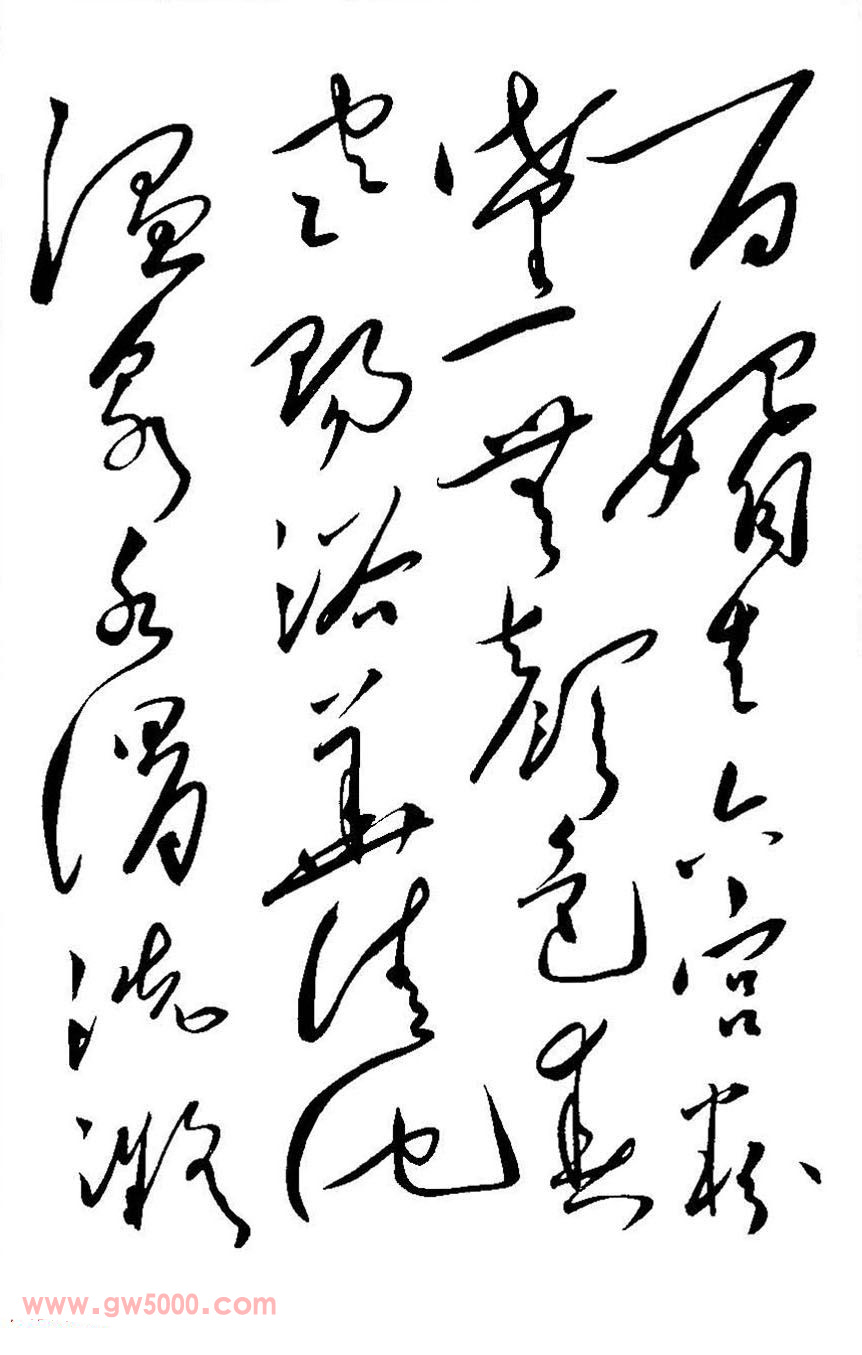 百媚生六宮粉
黛無顏色春
寒賜浴華清池
溫泉水滑洗凝
www.gw5000.com